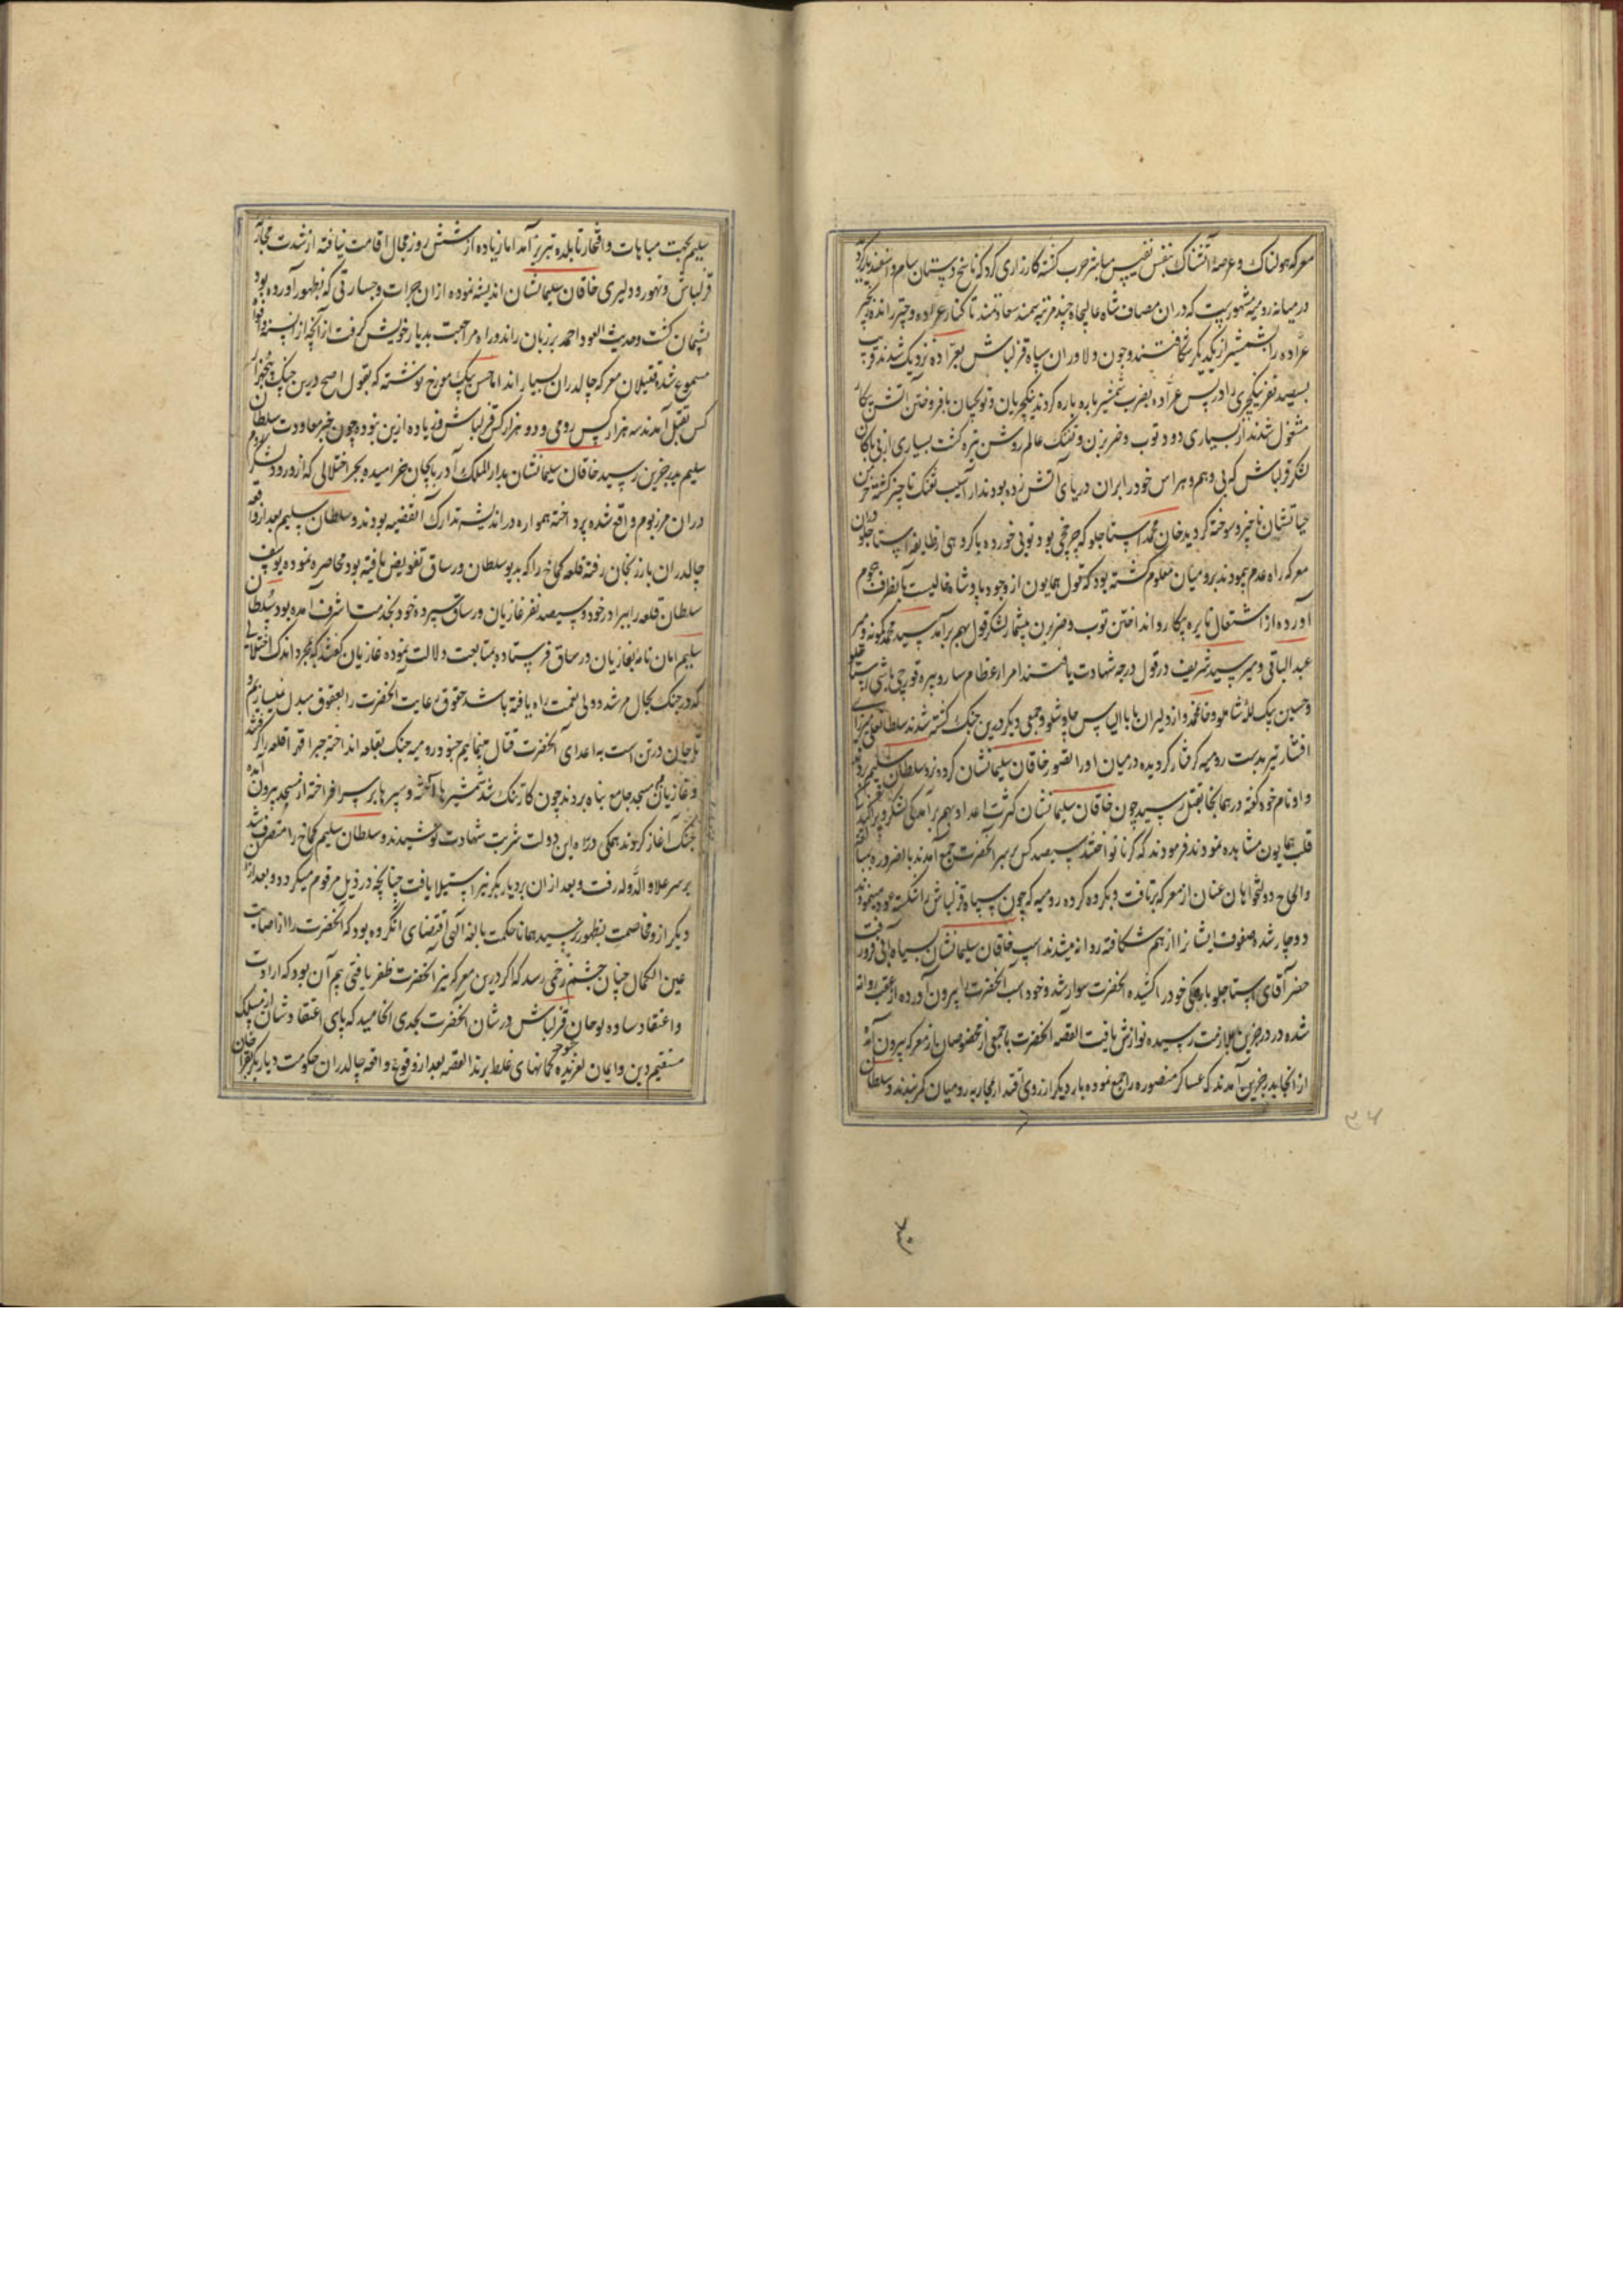 معرکه هولناک و عرصه آتشناک بنفس نفیس مباشر حرب گشته کارزاری کرد که ناسخ دستان سام و اسفندیار گردید
در میانه رومیه مشهور است که در ان مصاف شاه عالیجاه چند مرتبه سمند سعادتمند تا کنار عراده و چپر رانده زنجیر
عراده را بشمشیر از یکدیگر شکافتند و چون دلاوران سپاه قزلباش بعراده نزدیک شدند قریب
بسیصد نفر ینکچری را در پس عراده بضرب شمشیر پاره پاره کردند ینکچریان و توپچیان بافروختن آتش پیکار
مشغول شدند از بسیاری دود توپ و ضربزن و تفنگ عالم روشن تیره گشت بسیاری از بی باکان
لشکر قزلباش که بی وهم و هراس خود را بران دریای آتش زده بودند از آسیب تفنگ ناچیز گشته خرمن
حیاتشان ناچیز و سوخته گردید خان محمد استاجلو که چرخچی بود توپی خورده با گروهی از طایفه استاجلو در ان
معرکه راه عدم پیمودند بر رومیان معلوم گشته بود که قول همایون از وجود پادشاه خالیست بانطرف هجوم
آورده از اشتعال نایره پیکار و انداختن توپ و ضربزن بیشمار لشکر قول بهم برآمد سید محمد کمونه و میر
عبد الباقی و میر سید شریف در قول درجه شهادت یافتند از امراء عظام ساروپیره قورچی باشی استاجلو
و حسین بیک لله شاملو و خلفا و از دلیران بابا الیاس چاوشلو و جمعی دیگر درین جنگ کشته شدند سلطانعلی میرزای
افشار نیز بدست رومیه گرفتار گردیده در میان او را بتصور خاقان سلیمانشان کرده نزد سلطان سلیم بردند
و او نام خود گفته در همانجا بقتل رسید چون خاقان سلیمانشان کثرت اعدا و بهم برآمدگی لشکر و پراکندگی
قلب همایون مشاهده نمودند فرمودند که کرنا نواختند سیصد کس بر سر آنحضرت جمع آمدند بالضروره
و الحاح دولتخواهان عنان از معرکه برتافت و بکروه کروه رومیه که چون سپاه قزلباش را شکسته عود مینمودند
دوچار شده صفوف ایشانرا از هم شکافته روانه میشدند اسپ خاقان سلیمانشان بسیاه آبی فرو رفت
خضر آقای استاجلو بارهکی خود را کشیده آنحضرت سوار شد و خود اسب آنحضرت را بیرون آورده از عقب روانه
شده در درجزین بملازمت رسیده نوازش یافت القصه آنحضرت با جمعی از مخصوصان از معرکه بیرون آمده
از آنجا بدرجزین آمدند که عساکر منصوره را جمع نموده بار دیگر از روی اقتدار بمحاربه رومیان کمر بندند و سلطان
سلیم بجهت مباهات و افتخار تا بلده تبریز آمد اما زیاده از شش روز مجال اقامت نیافته از شدت محاربه
قزلباش و تهور و دلیری خاقان سلیمانشان اندیشه نموده از ان جرات و جسارتی که بظهور آورده بود
پشیمان گشت و حدیث العود احمد بر زبان رانده راه مراجعت بدیار خویش گرفت از آنچه از السنه و افواه
مسموع شده قتیلان معرکه چالدران بسیاراند اما حسن بیک مورخ نوشته که بقول اصح درین جنگ پنجهزار
کس بقتل آمدند سه هزار کس رومی و دو هزار کس قزلباش و زیاده ازین نبوده چون خبر معاودت سلطان
سلیم بدرجزین رسید خاقان سلیمانشان بدار الملک آذربایجان خرامیده بجبر اختلالی که از ورود لشکر روم
دران مرز بوم واقع شده پرداخته همواره در اندیشه تدارک آن قضیه بودند و سلطان سلیم بعد از واقعه
چالدران بارزنجان رفته قلعه کماخ را که به یوسف سلطان ورساق تفویض یافته بود محاصره نموده یوسف
سلطان قلعه را ببرادر خود و سیصد نفر غازیان ورساق سپرده خود بخدمت اشرف آمده بود سلطان
سلیم امان نامه بغازیان ورساق فرستاده بمتابعت دلالت نموده غازیان گفتند که بمجرد اندک اختلالی
که در جنگ بحال مرشد و ولی نعمت راه یافته باشد حقوق رعایت آنحضرت را بعقوق مبدل نمیسازیم و
تا جان در تن است به اعدای آنحضرت قتال مینمایم جنود رومیه جنگ بقلعه انداخته جبرا قهرا قلعه را گرفتند
و غازیان بمسجد جامع پناه بردند چون کار تنگ شد شمشیرها آخته و سپرها بر سر افراخته از مسجد بیرون آمده
جنگ آغاز کردند همگی در راه این دولت شربت شهادت نوشیدند و سلطان سلیم کماخ را متصرف شد
بر سر علاء الدوله رفت و بعد از ان بر دیاربکر نیز استیلا یافت چنانچه در ذیل مرقوم میگردد و بعد از ان
دیگر ازو مخاصمت بظهور نرسید همانا حکمت بالغه الهی اقتضای آن کرده بود که آنحضرت را از اصابت
عین الکمال چنان چشم زخمی رسد که اگر درین معرکه نیز آنحضرت ظفر یافتی بیم آن بود که ارادت
و اعتقاد ساده لوحان قزلباش در شان آنحضرت بجدی انجامید که پای اعتقادشان از مسلک
مستقیم دین و ایمان لغزیده گمانهای غلط برند القصه بعد از وقوع واقعه چالدران حکومت دیاربکر بقرا خان